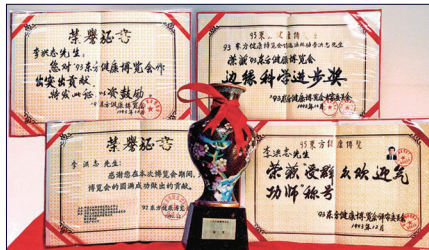 荣誉证书
李洪志先生:
您对'93东方健康博览会作
出突出贡献,
特发此证,以资鼓励。
'93东方健康博览会
93東方健康博览
李洪志先生
荣获'93东方健康博览会
边缘科学进步奖
'93东方健康博览会评审委员会
1993年12月
荣誉证书
李洪志先生:
感谢您在本次博览会期间,
博览会的圆满成功做出的贡献。
'93东方健康博览会
93東方健康博覽
李洪志先生
荣获"受群众欢迎气
功师"称号
'93东方健康博览会评审委员会
1993年12月